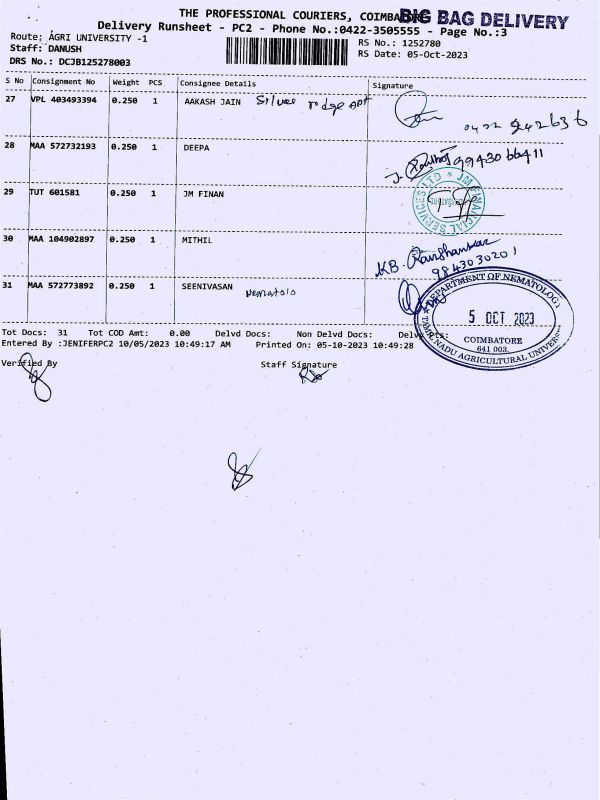 THE PROFESSIONAL COURIERS, COIMBATORE
BIG BAG DELIVERY
Delivery Runsheet - PC2 - Phone No.:0422-3505555 - Page No.:3
Route: AGRI UNIVERSITY -1
RS No.: 1252780
Staff: DANUSH
RS Date: 05-Oct-2023
DRS No.: DCJB125278003
S No Consignment No Weight PCS Consignee Details Signature
27 VPL 403493394 0.250 1 AAKASH JAIN Silver ridge apt
28 MAA 572732193 0.250 1 DEEPA
99430 66411
29 TUT 601581 0.250 1 JM FINAN
JM FINANCIAL SERVICES LTD
30 MAA 104902897 0.250 1 MITHIL
KB. Ravishankar
9843030201
31 MAA 572773892 0.250 1 SEENIVASAN
DEPARTMENT OF NEMATOLOGY
5 OCT 2023
COIMBATORE
641 003.
TAMIL NADU AGRICULTURAL UNIVERSITY
Tot Docs: 31 Tot COD Amt: 0.00 Delvd Docs: Non Delvd Docs:
Entered By :JENIFERPC2 10/05/2023 10:49:17 AM Printed On: 05-10-2023 10:49:28
Verified By Staff Signature